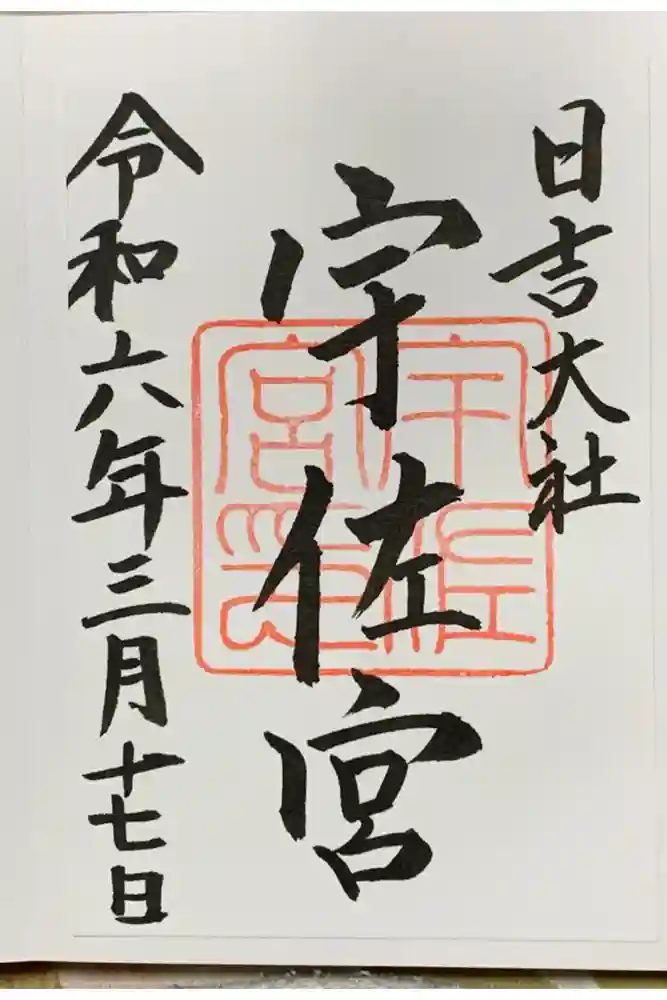 日吉大社
宇佐宮
宇佐
宮印
令和六年三月十七日